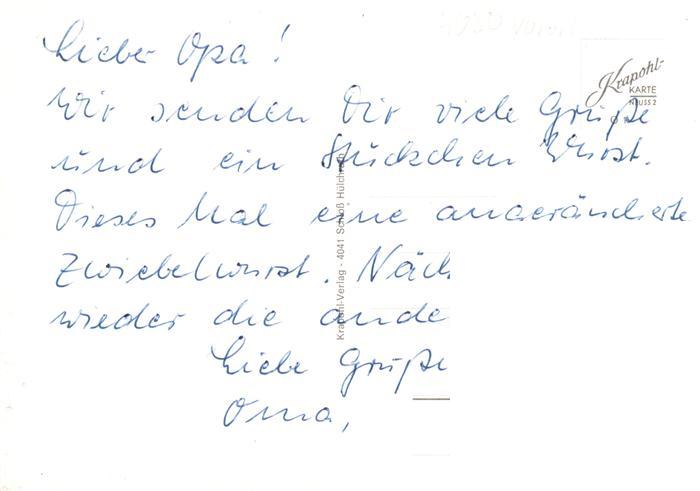 Lieber Opa!
Wir senden Dir viele Grüße
und ein Stückchen Wurst.
Dieses Mal eine angeräucherte
Zwiebelwurst. Näch
wieder die ande
Liebe Grüße
Oma,
Krapohl-
KARTE
NEUSS 2
Krapohl-Verlag - 4041 Schloß Hülchrath